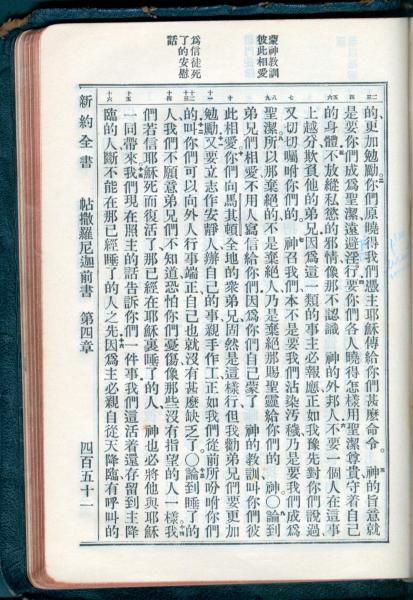 蒙神教訓
彼此相愛
爲信徒死
了的安慰
話
二三
四
五六
七
八九
十
十一
十二十三
十四
十五
十六
的更加勉勵你們原曉得我們憑主耶穌傳給你們甚麼命令神的旨意就
是要你們成爲聖潔遠避淫行要你們各人曉得怎樣用聖潔尊貴守着自己
的身體不放縱私慾的邪情像那不認識神的外邦人不要一個人在這事
上越分欺負他的弟兄因爲這一類的事主必報應正如我豫先對你們說過
又切切囑咐你們的神召我們本不是要我們沾染汚穢乃是要我們成爲
聖潔所以那棄絕的不是棄絕人乃是棄絕那賜聖靈給你們的神〇論到
弟兄們相愛不用人寫信給你們因爲你們自己蒙了神的教訓叫你們彼
此相愛你們向馬其頓全地的衆弟兄固然是這樣行但我勸弟兄們要更加
勉勵又要立志作安靜人辦自己的事親手作工正如我們從前所吩咐你們
的叫你們可以向外人行事端正自己也就沒有甚麼缺乏了〇論到睡了的
人我們不願意弟兄們不知道恐怕你們憂傷像那些沒有指望的人一樣我
們若信耶穌死而復活了那已經在耶穌裏睡了的人神也必將他與耶穌
一同帶來我們現在照主的話告訴你們一件事我們這活着還存留到主降
臨的人斷不能在那已經睡了的人之先因爲主必親自從天降臨有呼叫的
新約全書 帖撒羅尼迦前書 第四章 四百五十一